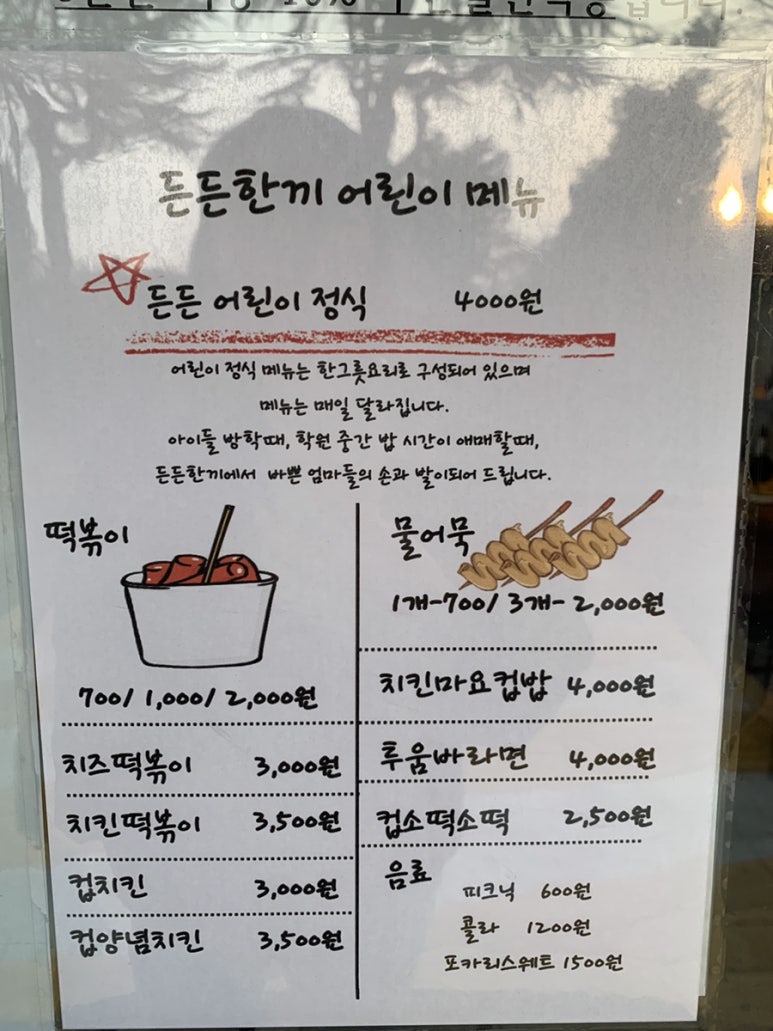 든든한끼 어린이 메뉴
든든 어린이 정식 4000원
어린이 정식 메뉴는 한그릇요리로 구성되어 있으며
메뉴는 매일 달라집니다.
아이들 방학때, 학원 중간 밥 시간이 애매할때,
든든한끼에서 바쁜 엄마들의 손과 발이되어 드립니다.
떡볶이
700/ 1,000/ 2,000원
치즈떡볶이 3,000원
치킨떡볶이 3,500원
컵치킨 3,000원
컵양념치킨 3,500원
물어묵
1개-700/ 3개- 2,000원
치킨마요컵밥 4,000원
투움바라면 4,000원
컵소떡소떡 2,500원
음료
피크닉 600원
콜라 1200원
포카리스웨트 1500원